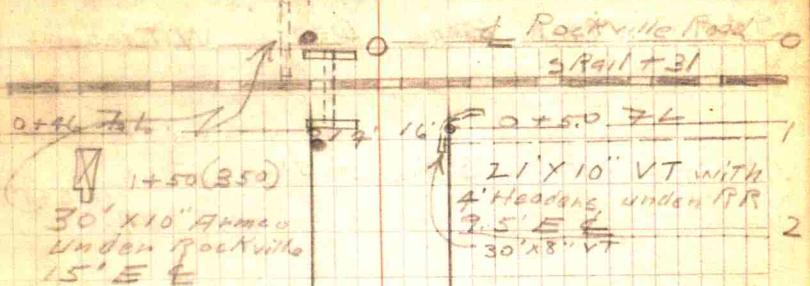 ℄ Rockville Road 0
S Rail + 31
0+42 7 L
7' 16' 0+50 7 L 1
1+50 (350)
30' X 10" Armco
under Rockville
15' E ℄
21' X 10" VT with
4' Headers under RR
9.5' E ℄ 2
30' X 8" VT